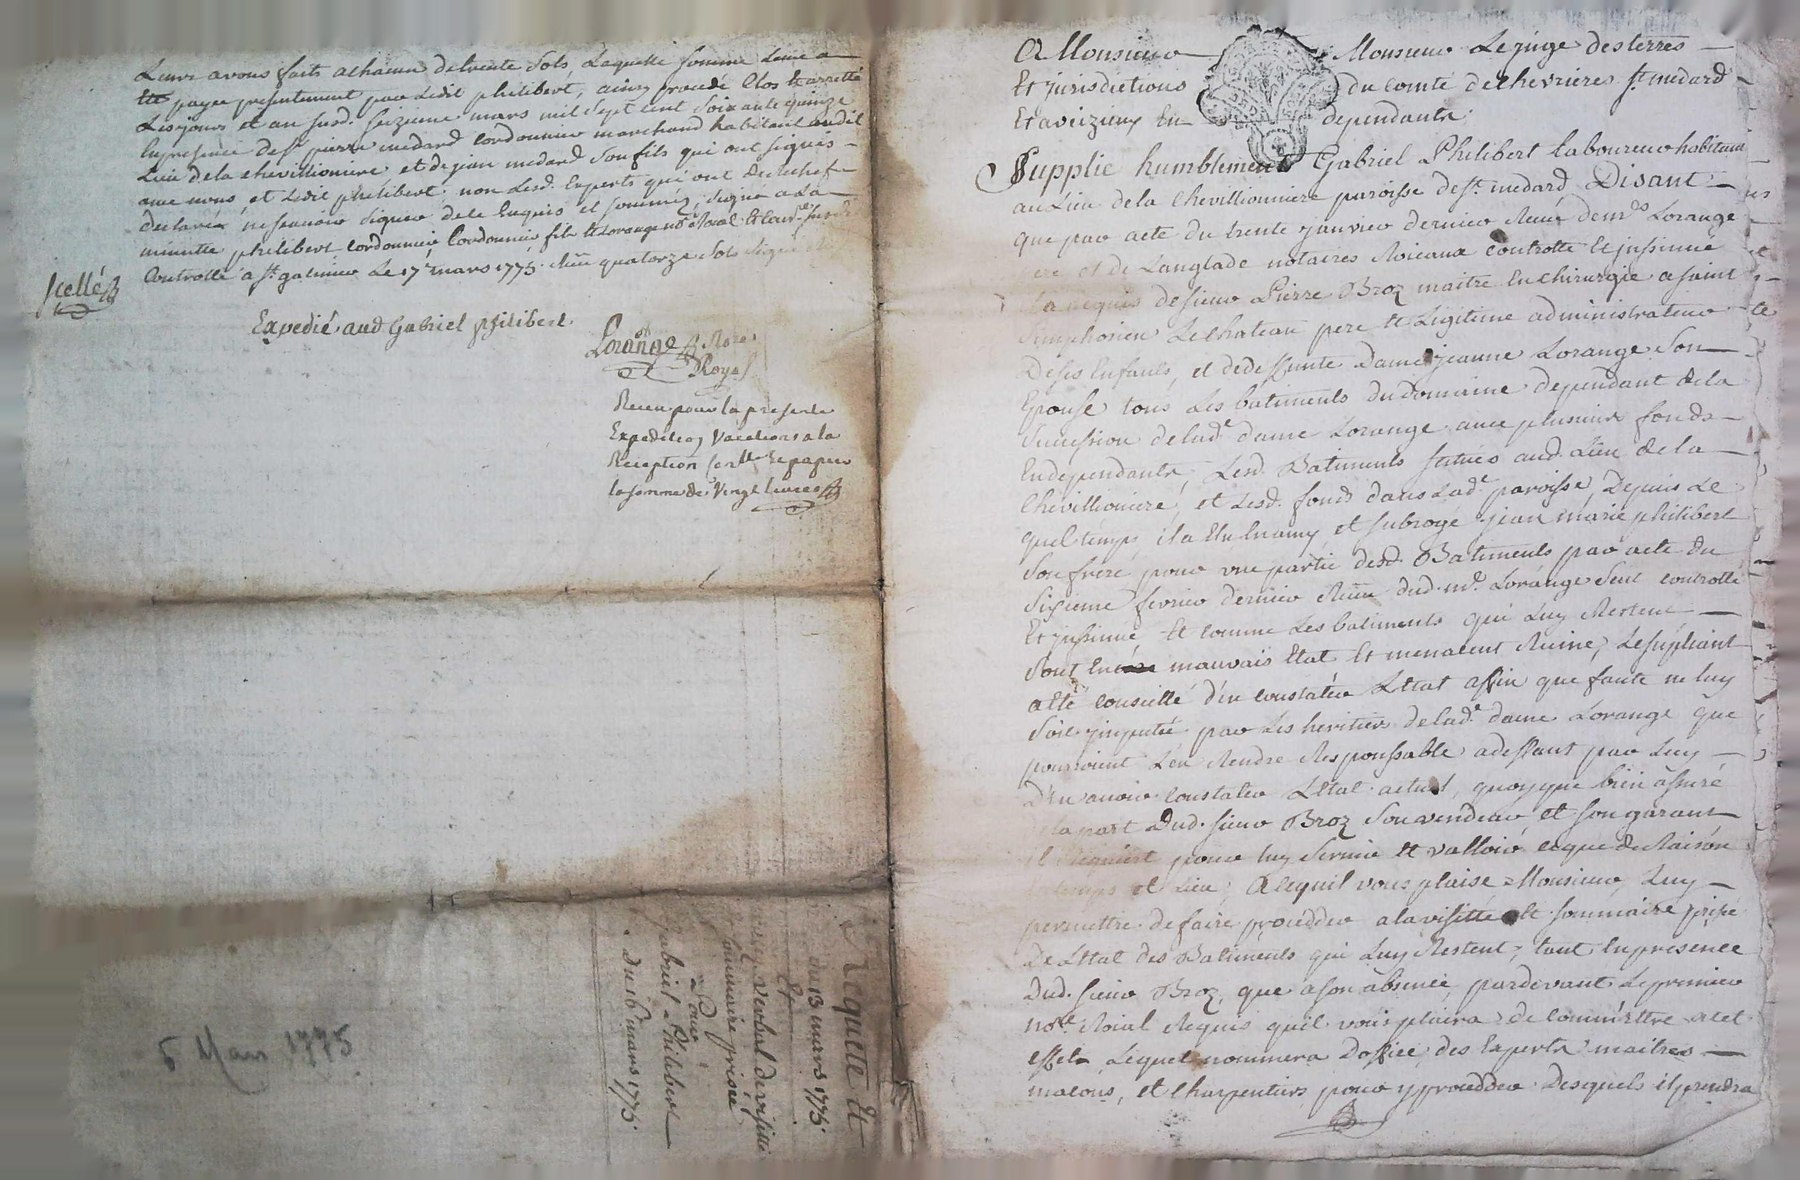 Leurs avons faits a chacun de trente sols Laquelle somme Leur a
été payee presentement par Ledit philibert, ainsy procédé Clos et arretté
Les jours et an susd. seizieme mars mil sept cent soixante quinze
En presence de sr. pierre medard cordonnier marchand habitant audit
Lieu de la chevillionniere et de jean medard son fils qui ont signés
avec nous, et Ledit philibert, non Lesd. Experts qui ont de rechef
declarés ne sçavoir signer de ce Enquis et sommés, signé a La
minutte philibert Cordonnier Cordonnier fils et Lorange nore Roial
Controllé a st. galmier Le 17e mars 1775. Reçu quatorze sols signé
scellé
Expedié aud Gabriel philibert
Lorange Nore
Royal
Receu pour la presente
Expedition vacations a la
Reception scelle et papier
la somme de vingt livres
Requette Et
du 13 mars 1775.
Et
verbal de visitte
sommaire prisée
Pour
Gabriel Philibert
du 16e mars 1775.
5 Mars 1775
A Monsieur Monsieur Le juge des terres
Et jurisdictions du comté de chevrieres st. medard
Et aveizieux En dependants
Supplie humblement Gabriel Philibert laboureur habitant
au Lieu de la chevillionniere paroisse de st. medard Disant
que par acte du trente janvier dernier Reçu de mes Lorange
pere et de Langlade notaires Roieaux controllé et jnsinué
Il a acquis de sieur Pierre Broz maitre En chirurgie a saint
Simphorien Le chateau pere et Legitime administrateur
De ses Enfants, et de deffunte Dame jeanne Lorange Son
Epouse tous Les batiments du domaine dependant de la
Succession de lade dame Lorange avec plusieurs fonds
En dependants, Lesd. Batiments scitués aud. Lieu de la
Chevillioniere, et Lesd. fonds dans Lade paroisse, Depuis Le
quel temps, il a Elu En amy et subrogé jean marie philibert
Son frere pour une partie desd. Batiments par acte du
Sixieme fevrier dernier Reçu dud. me. Lorange seul controllé
Et jnsinué Et comme Les batiments qui Luy Restent
Sont En mauvais Etat Et menacent Ruine, Le supliant
a Eté conseillé d'en constater L'Etat affin que faute ne luy
Soit jmputée par Les heritiers de lade dame Lorange qui
pourroient L'en Rendre Responssable a deffaut par Luy
D'En avoir constater L'Etat actuel, quoy que bien assuré
de la part Dud. sieur Broz Son vendeur et son garant
il Requiert pour luy Servir et valloir ce que de Raison
En temps et Lieu; A ce quil vous plaise Monsieur, Luy
permettre de faire procedder a la visitte et sommaire prisée
De L'Etat des Batiments qui Luy Restent, tant En presence
Dud. sieur Broz, que a son absence, pardevant Le premier
nore. Roial Requis quil vous plaira de commettre a cet
effet, Lequel nommera D'office des Experts maitres
macons, et Charpentiers pour y procedder Desquels il prendra